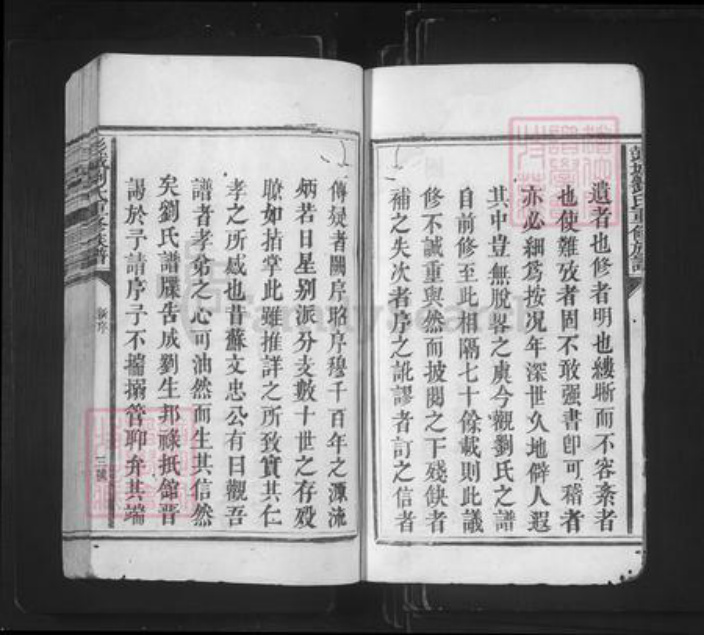 彭城劉氏重修族譜
遺者也修者明也縷晰而不容紊者
也使難攷者固不敢强書卽可稽者
亦必細爲按况年深世久地僻人遐
其中豈無脫畧之虞今觀劉氏之譜
自前修至此相隔七十餘載則此議
修不誠重與然而披閱之下殘缺者
補之失次者序之訛謬者訂之信者
傳疑者闕序昭序穆千百年之源流
炳若日星别派分支數十世之存殁
瞭如掌此雖推詳之所致實其仁
孝之所感也昔蘇文忠公有曰觀吾
譜者孝弟之心可油然而生其信然
矣劉氏譜牒告成劉生邦祿抵舘晋
謁於予請序予不揣搦管聊弁其端
彭城劉氏重修族譜
新序
三號
FamilySearch